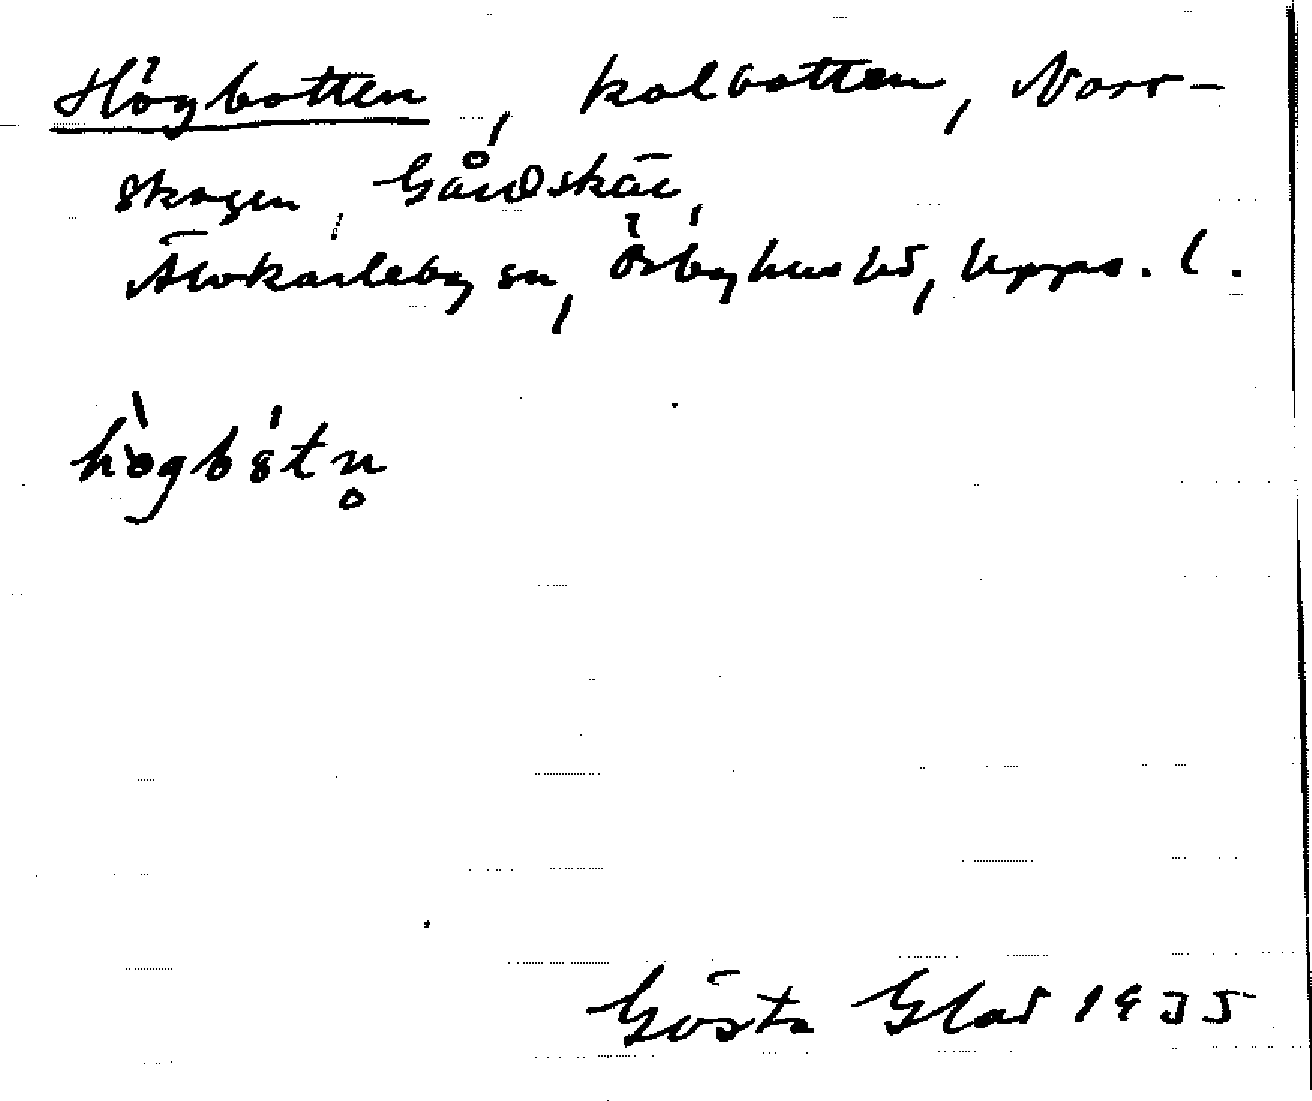 Högbotten, kolbotten, Norr-
skogen, Gårdskär,
Älvkarleby sn, Örbyhus hd, Upps. l.
högbòtn̥
Gösta Glad 1935